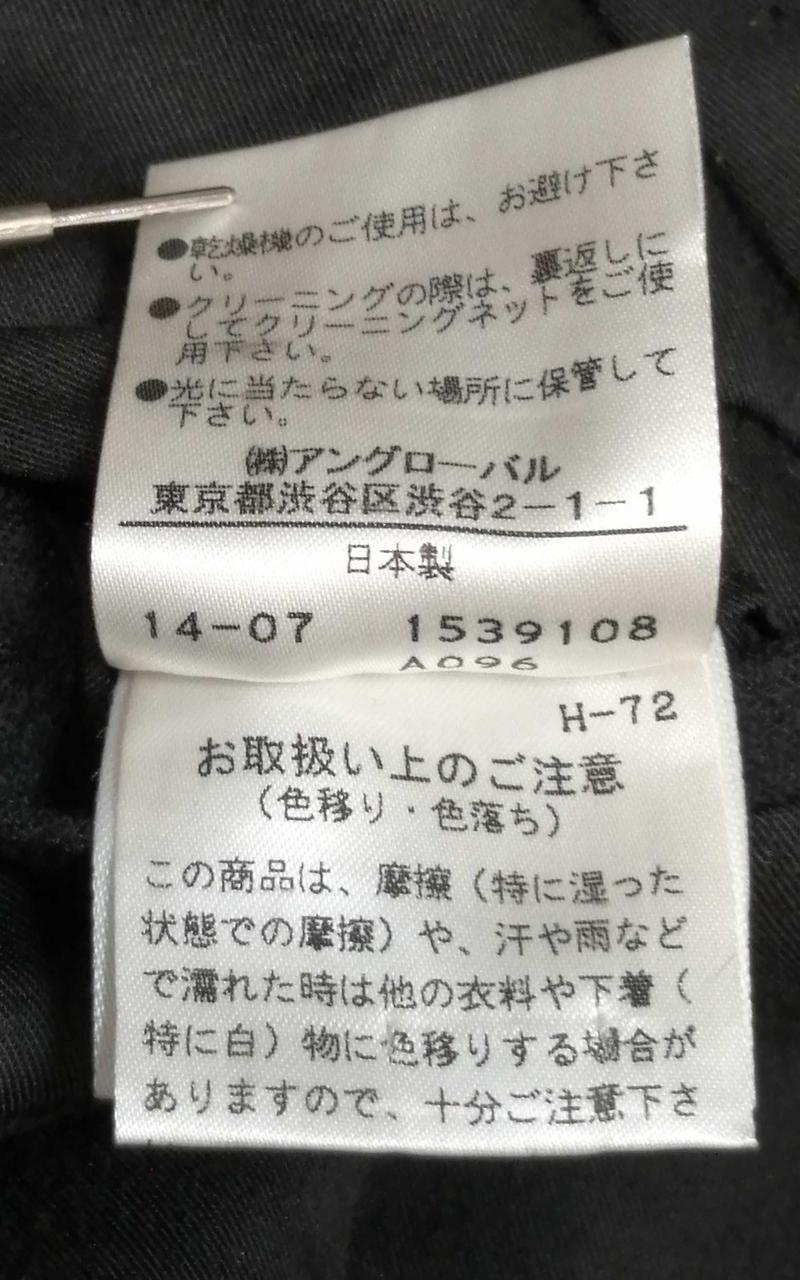 ●乾燥機のご使用は、お避け下さ
い。
●クリーニングの際は、裏返しに
してクリーニングネットをご使
用下さい。
●光に当たらない場所に保管して
下さい。
㈱アングローバル
東京都渋谷区渋谷2-1-1
日本製
14-07 1539108
A096
H-72
お取扱い上のご注意
(色移り・色落ち)
この商品は、摩擦(特に湿った
状態での摩擦)や、汗や雨など
で濡れた時は他の衣料や下着(
特に白)物に色移りする場合が
ありますので、十分ご注意下さ